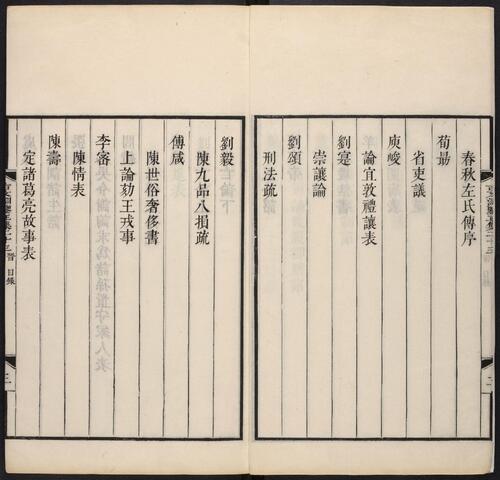 春秋左氏傳序
荀勗
省吏議
庾峻
論宜敦禮讓表
劉寔
崇讓論
劉頌
刑法疏
劉毅
陳九品八損疏
傅咸
陳世俗奢侈書
上論劾王戎事
李密
陳情表
陳壽
定諸葛亮故事表
晉 目錄
三